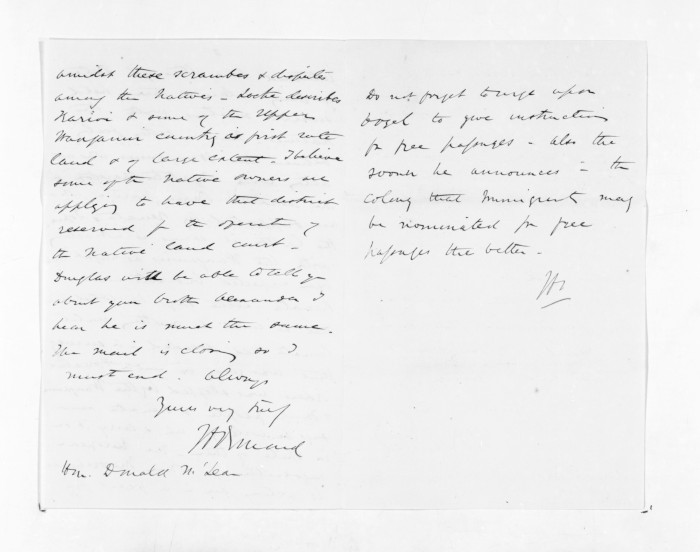 amidst these scrambles & disputes
among the Natives – Locke describes
& some of the Upper
Wanganui country as first rate
land & of large extent. I believe
some of the Native owners are
applying to have that district
reserved fm the operatn of
the Native land court –
Douglas will be able to tell you
about your brother Alexander I
hear he is much the same.
The mail is closing so I
must end. Always
Yours very truly
JD Ormond
Hon. Donald McLean
Do not forget to urge upon
Vogel to give instructions
for free passages – also the
sooner he announces in the
Colony that Immigrants may
be nominated for free
passages the better –